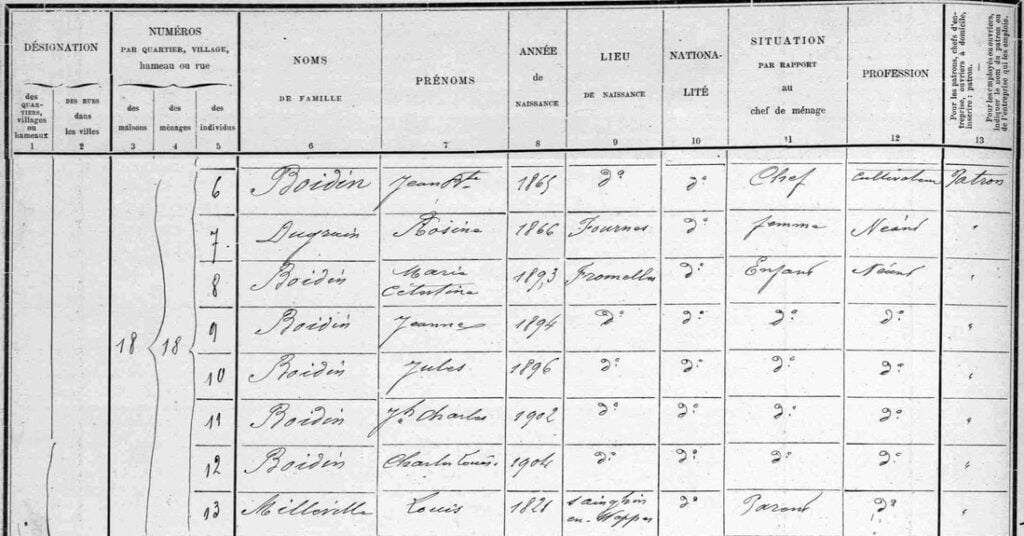 DÉSIGNATION
des QUAR-TIERS, villages ou hameaux
DES RUES dans les villes
NUMÉROS
PAR QUARTIER, VILLAGE,
hameau ou rue
des maisons
des ménages
des individus
NOMS
DE FAMILLE
PRÉNOMS
ANNÉE
de
NAISSANCE
LIEU
DE NAISSANCE
NATIONA-
LITÉ
SITUATION
PAR RAPPORT
au
chef de ménage
PROFESSION
Pour les patrons, chefs d'en-
treprise, ouvriers à domicile,
inscrire : patron.
—
Pour les employés ou ouvriers,
indiquer le nom du patron ou
de l'entreprise qui les emploie.
1 2 3 4 5 6 7 8 9 10 11 12 13
6 Boidin Jean Bte 1865 do do Chef Cultivateur Patron
7 Dugrain Rosine 1866 Fournes do femme Néant "
8 Boidin Marie Célestine 1893 Fromelles do Enfant Néant "
18 18 9 Boidin Jeanne 1894 do do do do "
10 Boidin Jules 1896 do do do do "
11 Boidin Jh Charles 1902 do do do do "
12 Boidin Charles Louis 1904 do do do do "
13 Milleville Louis 1821 Sainghin en-Weppes do Parent do